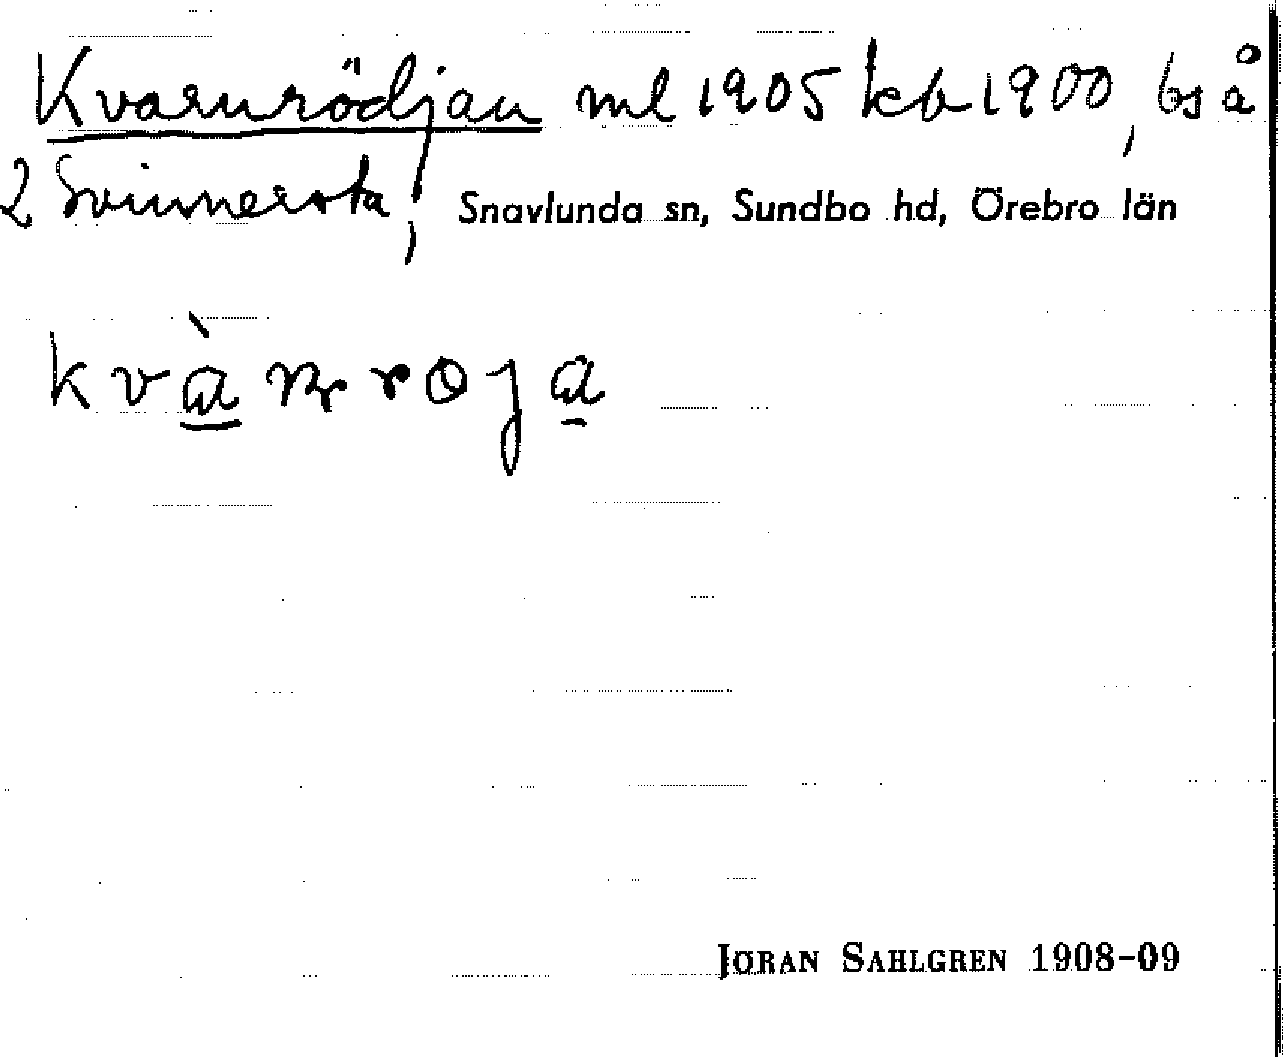 Kvarnrödjan ml 1905 kb 1900, bs å
2 Svinnersta, Snavlunda sn, Sundbo hd, Örebro län
kvàn̥roja
JÖRAN SAHLGREN 1908-09